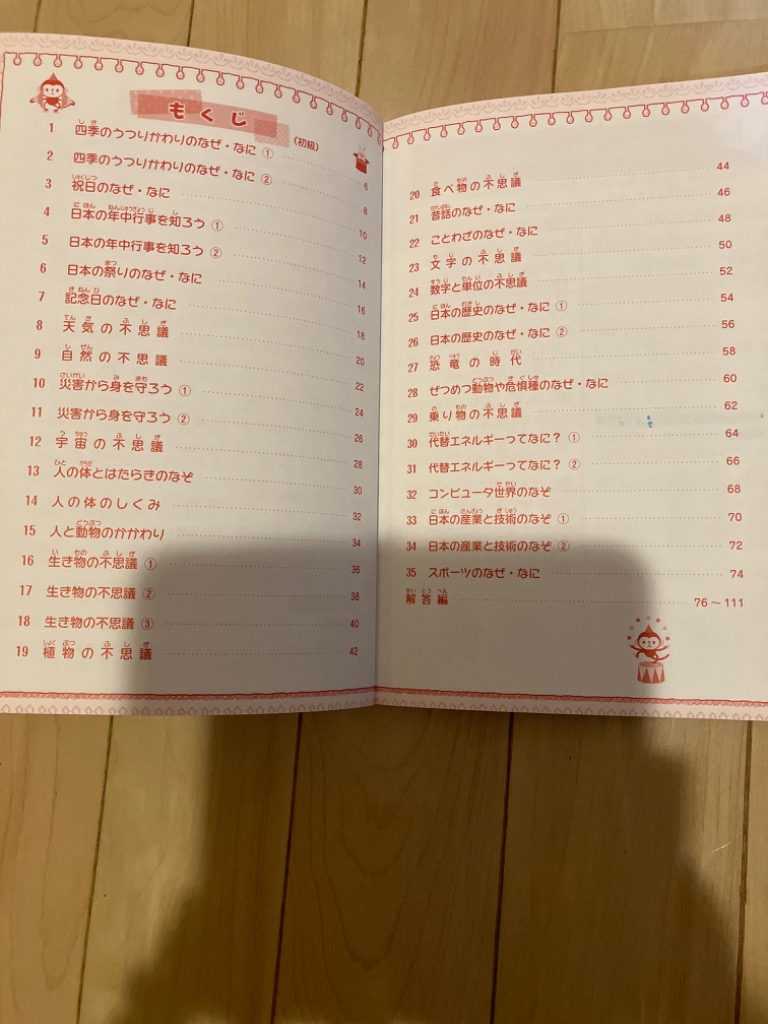 もくじ
(初級)
1 四季のうつりかわりのなぜ・なに ① 6
2 四季のうつりかわりのなぜ・なに ② 8
3 祝日のなぜ・なに 10
4 日本の年中行事を知ろう ① 12
5 日本の年中行事を知ろう ② 14
6 日本の祭りのなぜ・なに 16
7 記念日のなぜ・なに 18
8 天気の不思議 20
9 自然の不思議 22
10 災害から身を守ろう ① 24
11 災害から身を守ろう ② 26
12 宇宙の不思議 28
13 人の体とはたらきのなぞ 30
14 人の体のしくみ 32
15 人と動物のかかわり 34
16 生き物の不思議 ① 36
17 生き物の不思議 ② 38
18 生き物の不思議 ③ 40
19 植物の不思議 42
20 食べ物の不思議 44
21 昔話のなぜ・なに 46
22 ことわざのなぜ・なに 48
23 文字の不思議 50
24 数字と単位の不思議 52
25 日本の歴史のなぜ・なに ① 54
26 日本の歴史のなぜ・なに ② 56
27 恐竜の時代 58
28 ぜつめつ動物や危惧種のなぜ・なに 60
29 乗り物の不思議 62
30 代替エネルギーってなに? ① 64
31 代替エネルギーってなに? ② 66
32 コンピュータ世界のなぞ 68
33 日本の産業と技術のなぞ ① 70
34 日本の産業と技術のなぞ ② 72
35 スポーツのなぜ・なに 74
解答編 76〜111